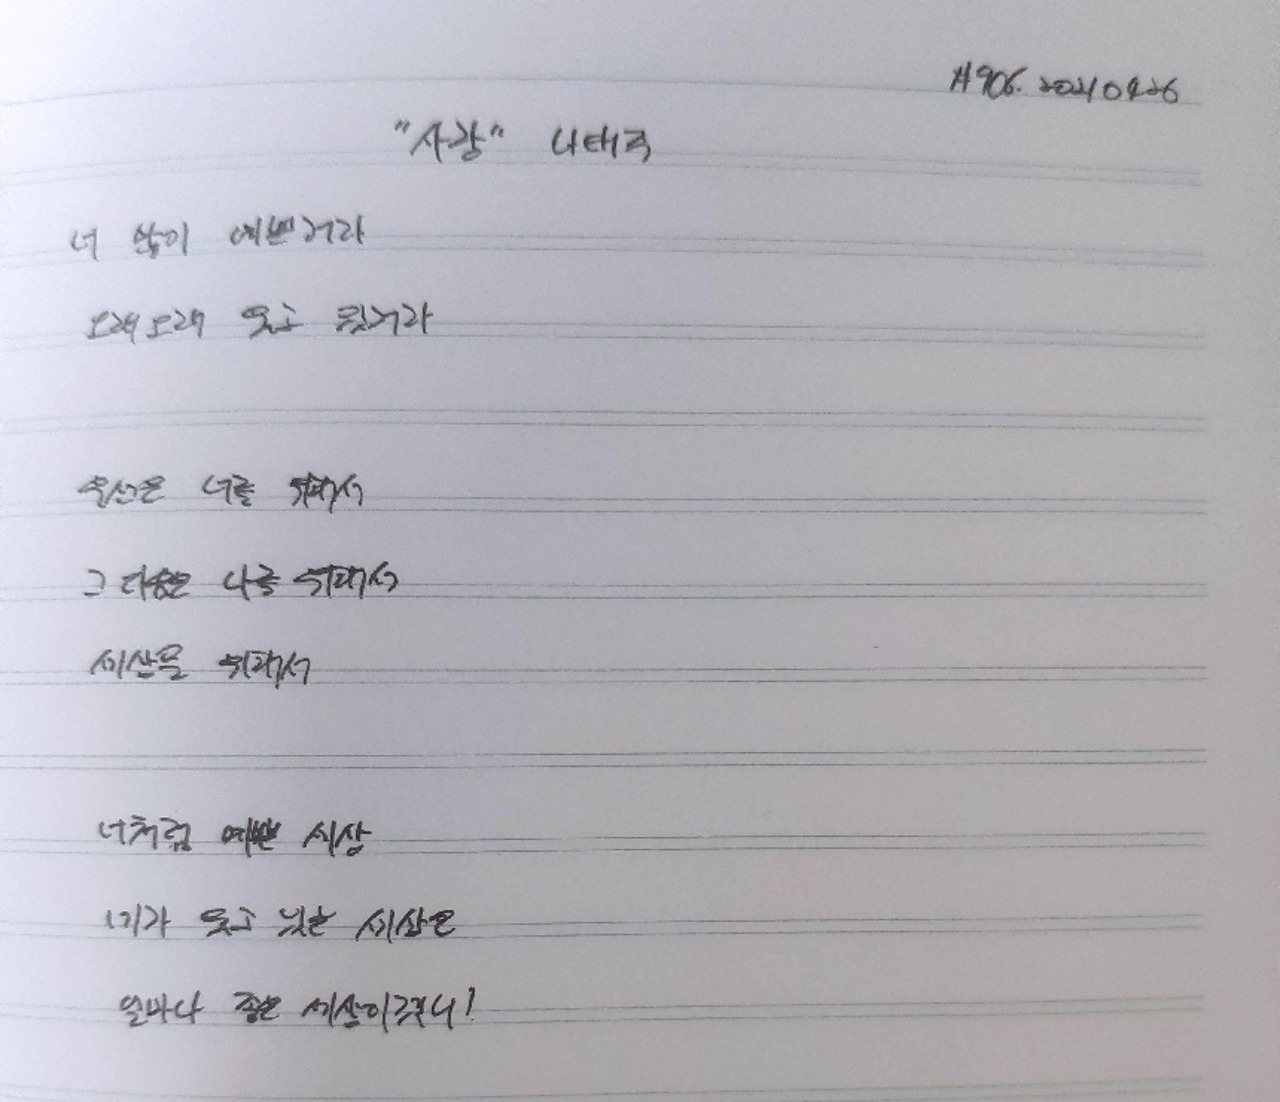 #906. 20210926
"사랑" 나태주
너 많이 예쁘거라
오래오래 웃고 있거라
우선은 너를 위해서
그 다음은 나를 위해서
세상을 위해서
너처럼 예쁜 세상
네가 웃고 있는 세상은
얼마나 좋은 세상이겠니!